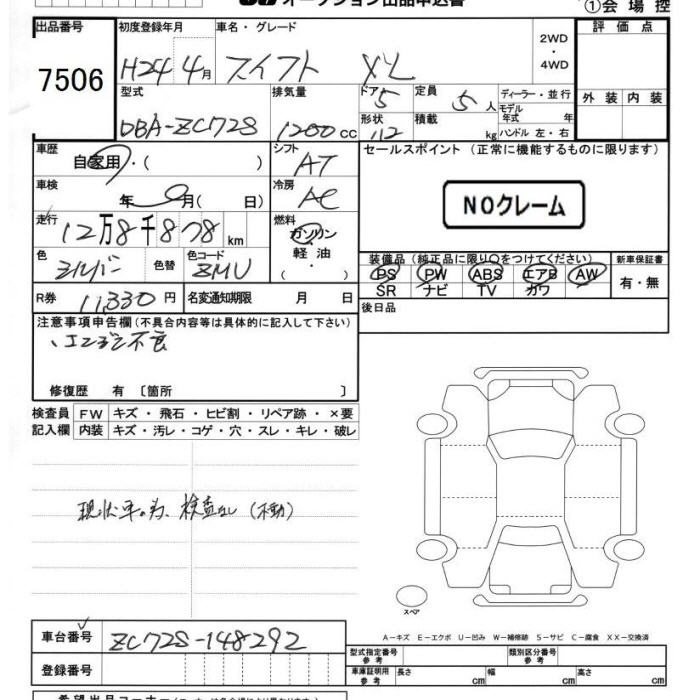 オークション出品申込書
①会場控
出品番号 初度登録年月 車名・グレード 評価点
7506 H24 4月 スイフト XL 2WD・4WD
型式 排気量 ドア 定員 ディーラー・並行 外装 内装
DBA-ZC72S 1200cc 5 5人 モデル年式 年
形状 積載 kg ハンドル 左・右
112
車歴 シフト セールスポイント(正常に機能するものに限ります)
自家用・( ) AT
車検 冷房
年 月( 日) AC NOクレーム
走行 燃料
12万8千878km ガソリン
軽油
・( )
色 色替 色コード 装備品(純正品に限り○をつけてください) 新車保証書
シルバー ZMU PS PW ABS エアB AW 有・無
SR ナビ TV カワ
R券 11,330円 名変通知期限 月 日 後日品
注意事項申告欄(不具合内容等は具体的に記入して下さい)
、エンジン不良
修復歴 有 〔箇所 〕
検査員 FW キズ・飛石・ヒビ割・リペア跡・×要
記入欄 内装 キズ・汚レ・コゲ・穴・スレ・キレ・破レ
現状車の為、検査なし(不動)
スペア
A－キズ E－エクボ U－凹み W－補修跡 S－サビ C－腐食 XX－交換済
車台番号 ZC72S-148292 型式指定番号 参考 類別区分番号 参考
登録番号 車庫証明用 参考 長さ cm 幅 cm 高さ cm